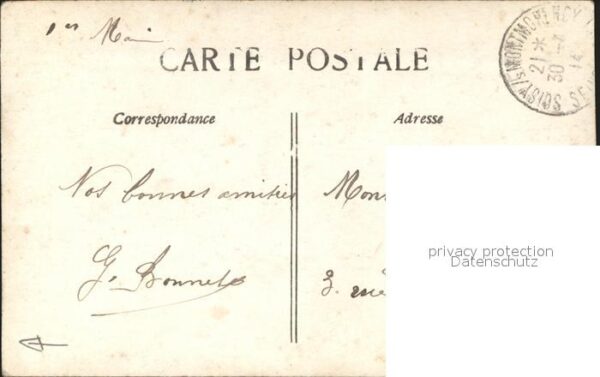 1er Mai
CARTE POSTALE
SOISY S/S MONTMORENCY
21 *
30 -4
14
SEINE
Correspondance
Adresse
Nos bonnes amitiés
G. Bonnet
Mon
3. rue
privacy protection
Datenschutz